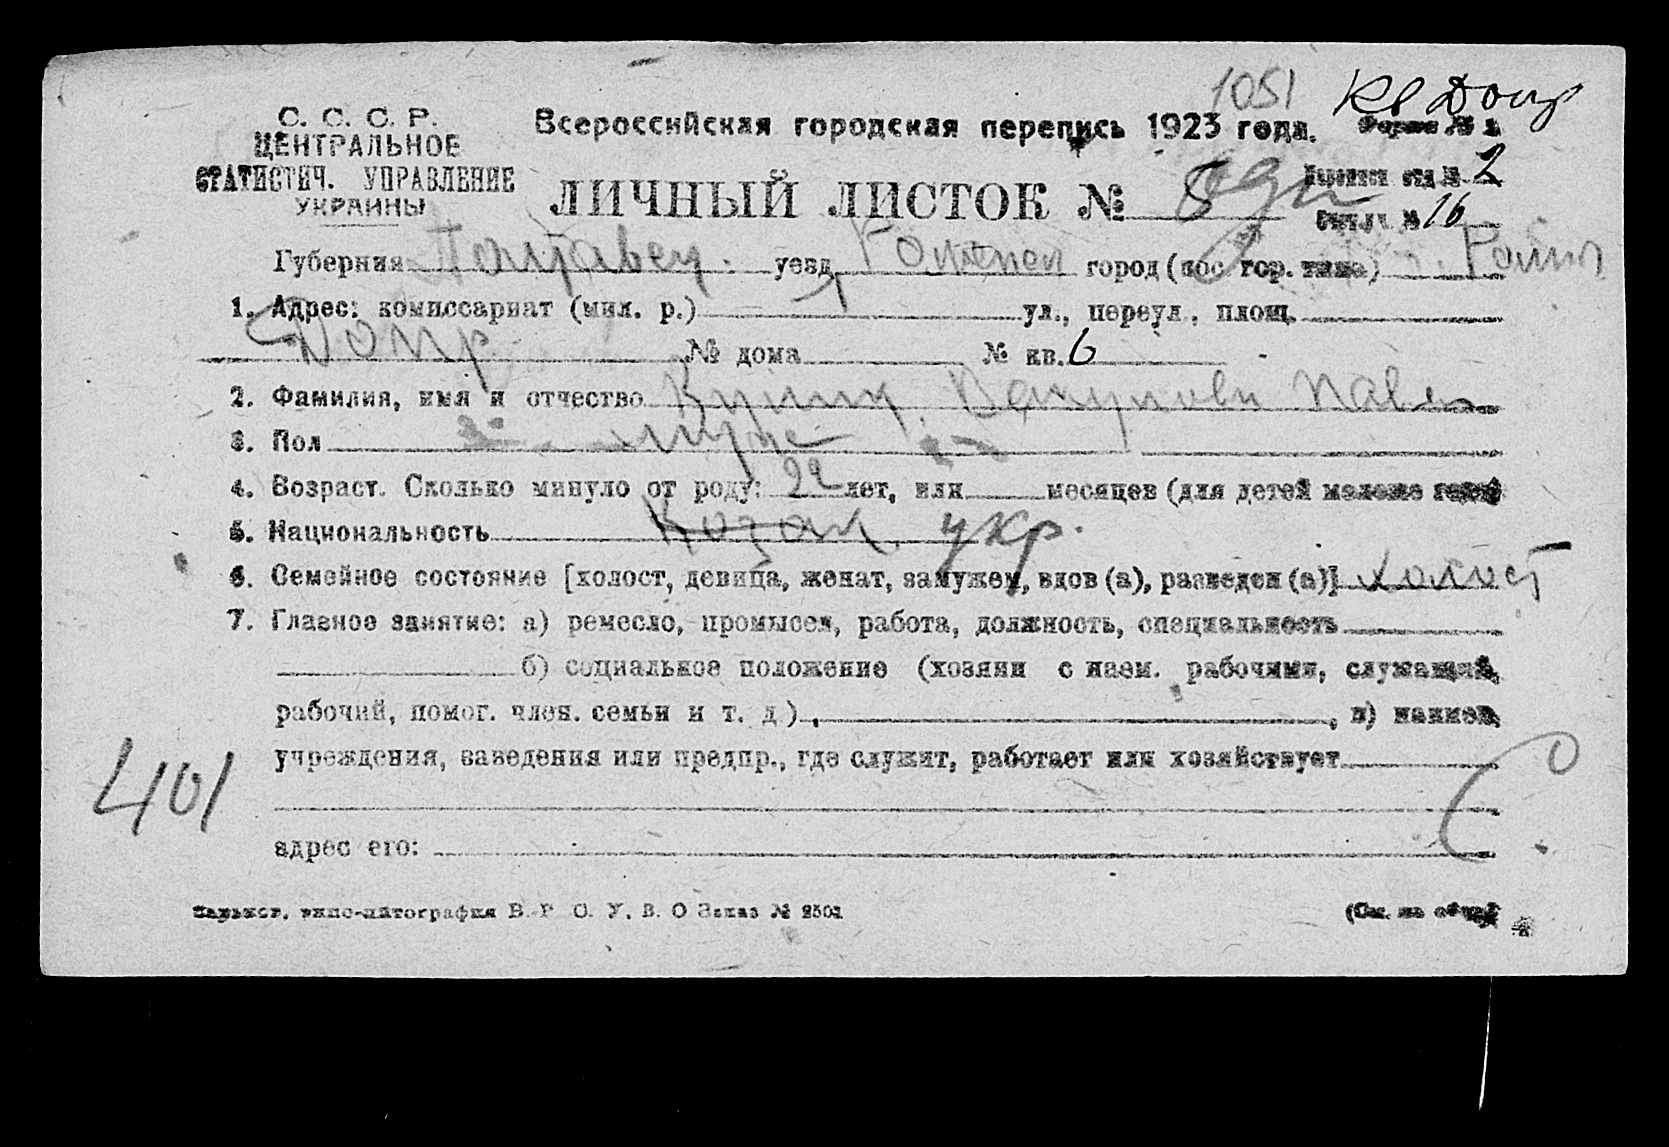 1051 Кв Допр
С. С. С. Р.
ЦЕНТРАЛЬНОЕ
СТАТИСТИЧ. УПРАВЛЕНИЕ
УКРАИНЫ
Всероссийская городская перепись 1923 года.
Форма № 1
ЛИЧНЫЙ ЛИСТОК № 5
Переписн отд № 2
Счетч. № 16
Губерния Полтавец. уезд Роменск город (пос гор. типа) г. Ромны
1. Адрес: комиссариат (мил. р.) ул., переул., площ.
Допр № дома № кв. 6
2. Фамилия, имя и отчество Павел
3. Пол муж
4. Возраст. Сколько минуло от роду: 22 лет, или месяцев (для детей моложе года)
5. Национальность Козак укр.
6. Семейное состояние [холост, девица, женат, замужем, вдов (а), разведен (а)] холост
7. Главное занятие: а) ремесло, промысел, работа, должность, специальность
б) социальное положение (хозяин с наем. рабочими, служащий,
рабочий, помог. член. семьи и т. д.), , в) наимен.
учреждения, заведения или предпр., где служит, работает или хозяйствует
401
адрес его:
Харьков. типо-литография В. Р. С. У. В. О Заказ № 2501
(См. на обор.)